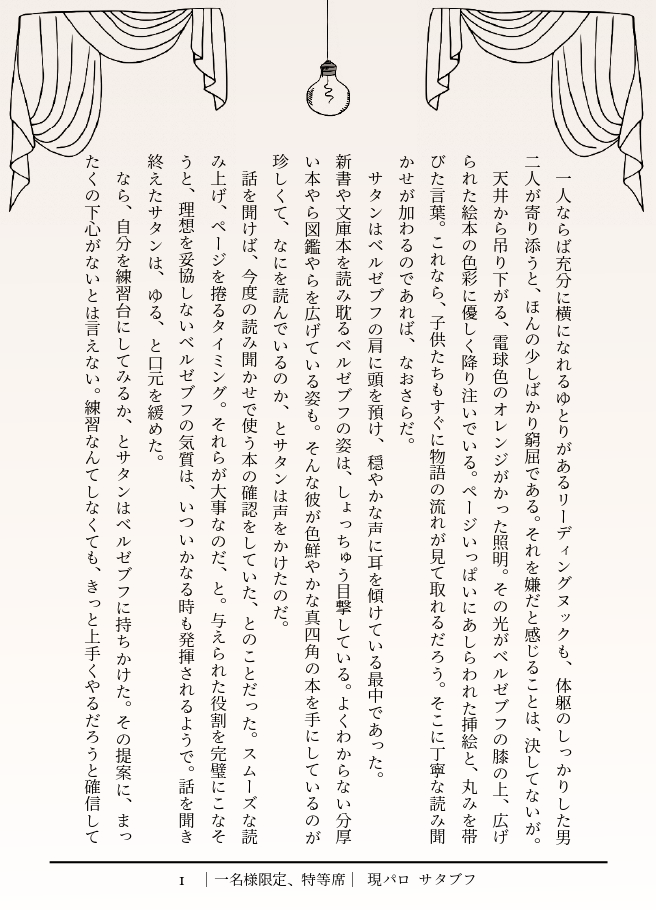 一人ならば充分に横になれるゆとりがあるリーディングヌックも、体躯のしっかりした男
二人が寄り添うと、ほんの少しばかり窮屈である。それを嫌だと感じることは、決してないが。
天井から吊り下がる、電球色のオレンジがかった照明。その光がベルゼブフの膝の上、広げ
られた絵本の色彩に優しく降り注いでいる。ページいっぱいにあしらわれた挿絵と、丸みを帯
びた言葉。これなら、子供たちもすぐに物語の流れが見て取れるだろう。そこに丁寧な読み聞
かせが加わるのであれば、なおさらだ。
サタンはベルゼブフの肩に頭を預け、穏やかな声に耳を傾けている最中であった。
新書や文庫本を読み耽るベルゼブフの姿は、しょっちゅう目撃している。よくわからない分厚
い本やら図鑑やらを広げている姿も。そんな彼が色鮮やかな真四角の本を手にしているのが
珍しくて、なにを読んでいるのか、とサタンは声をかけたのだ。
話を聞けば、今度の読み聞かせで使う本の確認をしていた、とのことだった。スムーズな読
み上げ、ページを捲るタイミング。それらが大事なのだ、と。与えられた役割を完璧にこなそ
うと、理想を妥協しないベルゼブフの気質は、いついかなる時も発揮されるようで。話を聞き
終えたサタンは、ゆる、と口元を緩めた。
なら、自分を練習台にしてみるか、とサタンはベルゼブフに持ちかけた。その提案に、まっ
たくの下心がないとは言えない。練習なんてしなくても、きっと上手くやるだろうと確信して
1 ｜一名様限定、特等席｜ 現パロ サタブフ